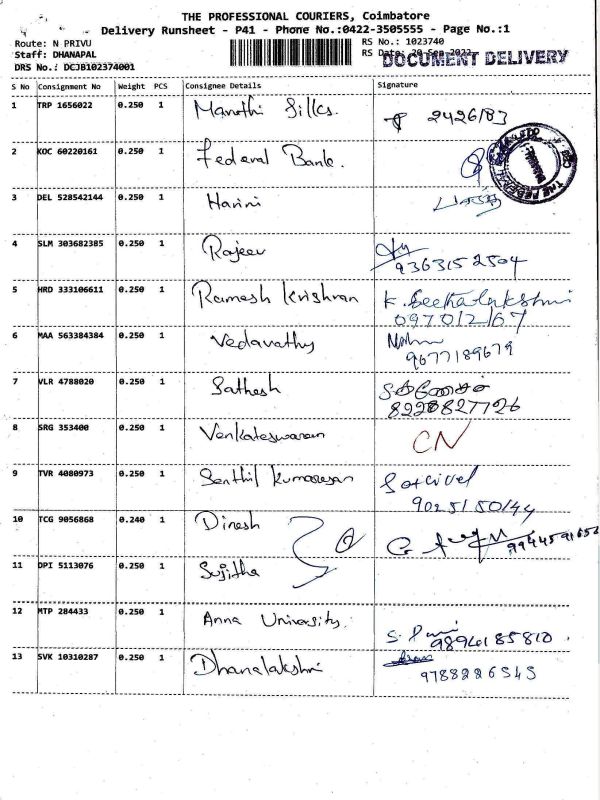 THE PROFESSIONAL COURIERS, Coimbatore
Delivery Runsheet - P41 - Phone No.:0422-3505555 - Page No.:1
Route: N PRIVU
RS No.: 1023740
Staff: DHANAPAL
RS Date: 20-Sep-2022
DOCUMENT DELIVERY
DRS No.: DCJB102374001
S No Consignment No Weight PCS Consignee Details Signature
1 TRP 1656022 0.250 1 Maruthi Silks. 2426183
2 KOC 60220161 0.250 1 Federal Bank.
3 DEL 528542144 0.250 1 Harini
4 SLM 303682385 0.250 1 Rajeev
9363152504
5 HRD 333106611 0.250 1 Ramesh Krishnan K. Seethalakshmi
097012167
6 MAA 563384384 0.250 1 Vedavathy
9677189679
7 VLR 4788020 0.250 1 Sathesh
8220827726
8 SRG 353400 0.250 1 Venkateswaran CN
9 TVR 4080973 0.250 1 Senthil Kumaresan
9025150144
10 TCG 9056868 0.240 1 Dinesh
11 DPI 5113076 0.250 1 Sujitha
12 MTP 284433 0.250 1 Anna University.
9894185810
13 SVK 10310287 0.250 1 Dhanalakshmi
9788886545